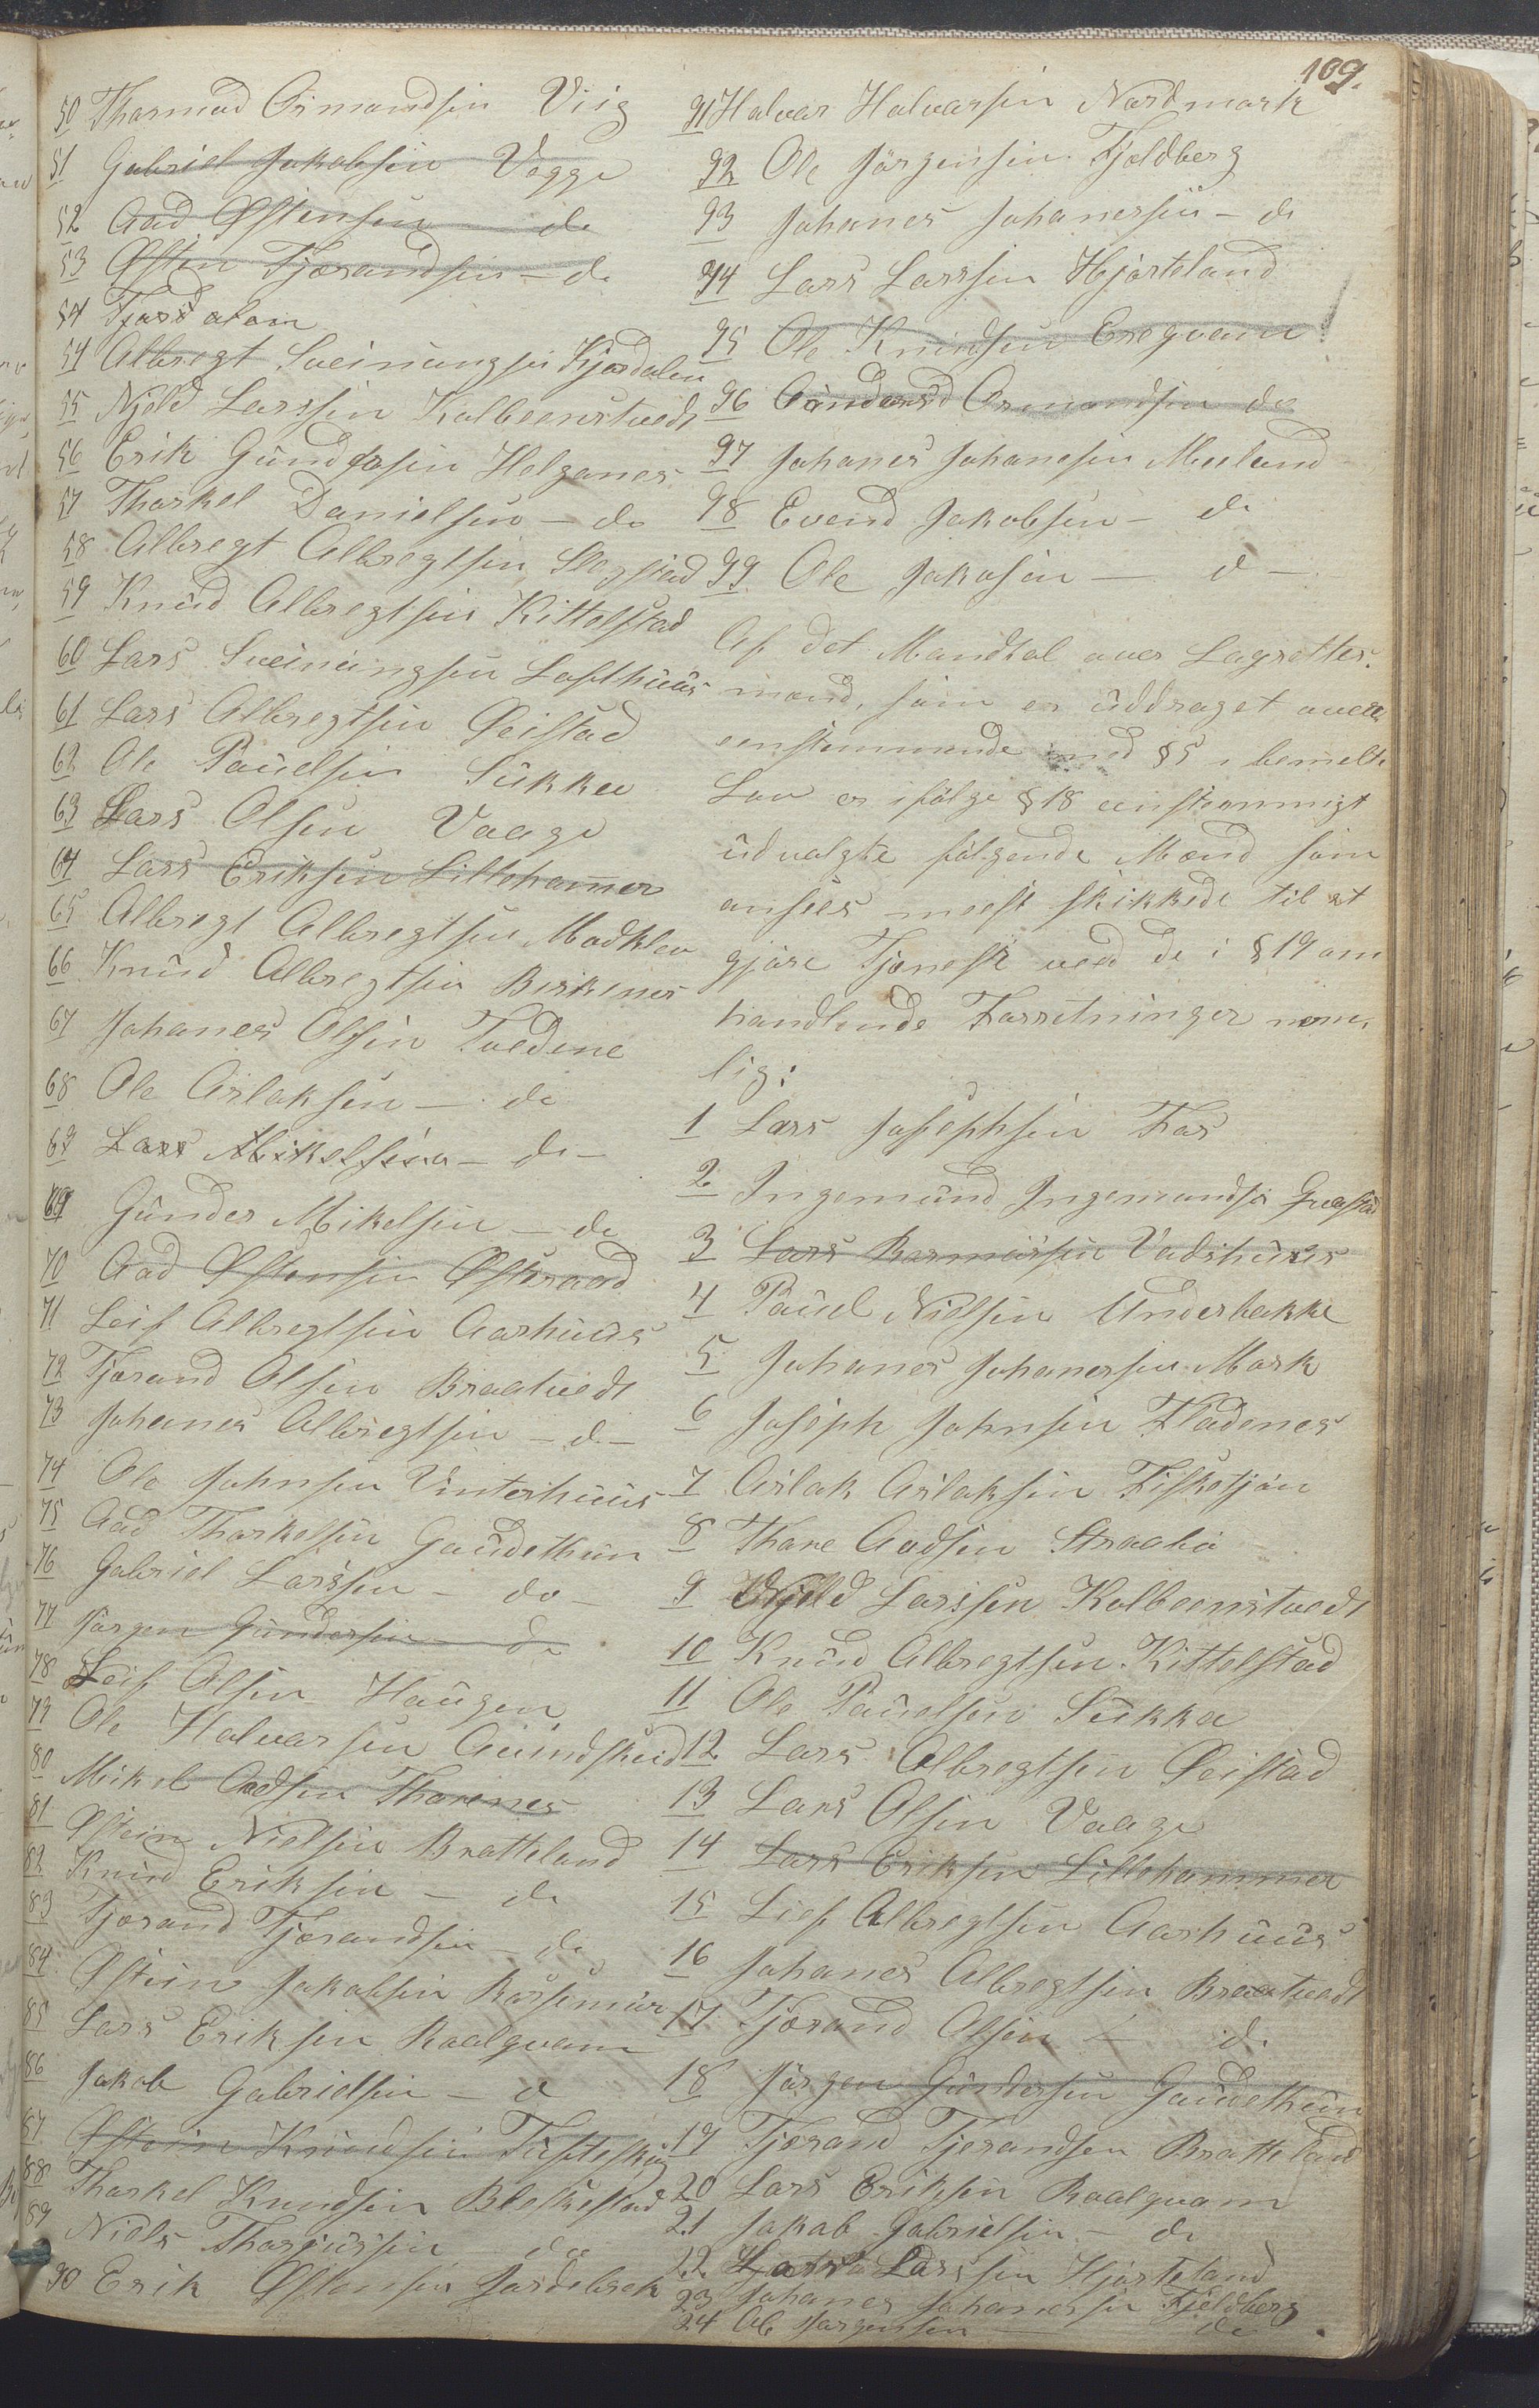 109.
50 Thormod Osmondsen Viig
51 Gabriel Jakobsen Vegge
52 Aad Østensen - do
53 Østen Tjerandsen - do
54 Fjordalom
54 Albregt Sveinungsen Fjordalen
55 Njeld Larssen Kolbeenstvedt
56 Erik Gundersen Helganes
57 Thorkel Danielsen - do
58 Albregt Albregtsen Slogstad
59 Knud Albregtsen Kittelstad
60 Lars Sveinungsen Lofthuus
61 Lars Albregtsen Øeistad
62 Ole Poulsen Sukka
63 Lars Olsen Vaage
64 Lars Eriksen Lillehammer
65 Albregt Albregtsen Madklev
66 Knud Albregtsen Birkenes
67 Johanes Olsen Tvedene
68 Ole Aslaksen - do
69 Lars Mikelsen - do -
69 Gunder Mikelsen - do
70 Aad Østensen Østeraad
71 Leif Albregtsen Aarhuus
72 Tjerand Olsen Braatvedt
73 Johanes Albregtsen - d -
74 Ole Johnsen Vinterhuus
75 Aad Thorkelsen Goudethun
76 Gabriel Larssen - do -
77 Jørgen Gundersen do
78 Leif Olsen Haugen
79 Ole Halvorsen Quindskeid
80 Mikel Aadsen Thorenes
81 Østein Nielsen Bratteland
82 Knud Eriksen - do
83 Tjerand Tjerandsen - do
84 Østein Jakobsen Rossemur
85 Lars Eriksen Raalqvam
86 Jakob Gabrielsen - d
87 Østein Knudsen Tufteskog
88 Thorkel Knudsen Bleskestad
89 Niels Thorgiersen do
90 Erik Østensen Jordebrek
91 Halvor Halvorsen Nordmark
92 Ole Jørgensen Fjeldberg
93 Johanes Johanessen - do
94 Lars Larssen Hjorteland
95 Ole Knudsen Eregvam
96 Osmond Osmondsen do
97 Johanes Johanesen Meeland
98 Evend Jakobsen - do
99 Ole Jakosen - d -
Af det Mandtal over Lagrettes-
mænd, som er uddraget overe
eenstemmende med § 5 i bemelte
Lov er ifølge § 18 eenstemmigt
udvalgte følgende Mænd som
ansees meest skikkede til at
gjøre Tjeneste ved de i § 19 om
handlende Forretninger nem-
lig:
1 Lars Josephsen Foss
2 Ingemund Ingemundsen Grostad
3 Lars Rasmussen Vadshuus
4 Poul Nielsen Underbakke
5 Johanes Johanessen Mork
6 Joseph Johnsen Fladenes
7 Aslak Aslaksen Fisketjøn
8 Thore Aadsen Straabø
9 Njeld Larssen Kolbeenstvedt
10 Knud Albregtsen Kittelstad
11 Ole Poulsen Sukka
12 Lars Albregtsen Øeistad
13 Lars Olsen Vaage
14 Lars Eriksen Lillehammer
15 Lief Albregtsen Aarhuus
16 Johanes Albregtsen Braatvedt
17 Tjerand Olsen - do
18 Jørgen Gundersen Goudethun
19 Tjerand Tjerandsen Bratteland
20 Lars Eriksen Raalqvam
21 Jakob Gabrielsen - do
22 Lars Larssen Hjorteland
23 Johanes Johanessen Fjeldberg
24 Ole Jørgensen - do